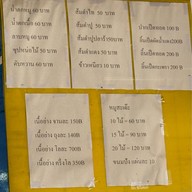 น้ำตกหมู 60 บาท
น้ำตกเนื้อ 60 บาท
ลาบหมู 60 บาท
ซุปหน่อไม้ 50 บาท
ตับหวาน 60 บาท
ส้มตำไทย 50 บาท
ส้มตำปู 50 บาท
ส้มตำปูปลาร้า 50 บาท
ส้มตำแตง 50 บาท
ข้าวเหนียว 10 บาท
100 บ
200 บ
200 บ
เนื้อย่าง จานละ 150฿
เนื้อย่าง ถุงละ 140฿
เนื้อย่าง โลละ 700฿
เนื้อย่าง ครึ่งโล 350฿
หมูสะเต๊ะ
10 ไม้ = 60 บาท
15 ไม้ = 90 บาท
20 ไม้ = 120 บาท
ขนมปัง แผ่นละ 10